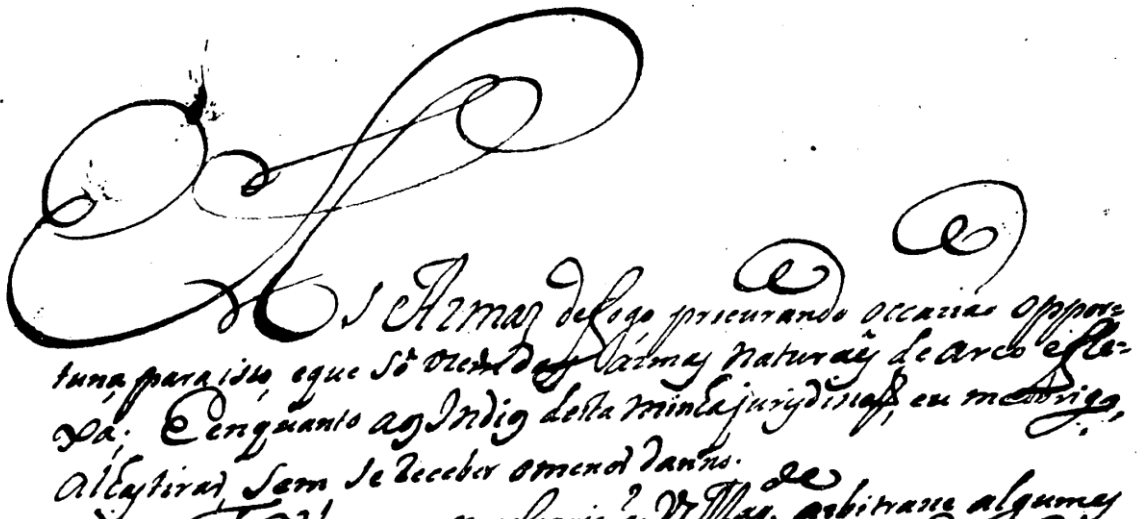 As Armas de fogo procurando occazião oppor=
tuna para isto, e que só uzem das armas naturaes de arco e fle=
xa; E enquanto aos Indios desta minha jurysdição, eu me obrigo
a lhas tirar, sem se receber o menor danno.
V. Mag.de arbitrane algumas